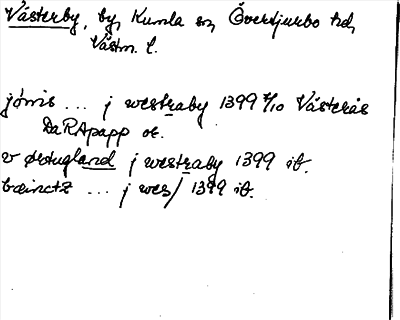 Västerby, by, Kumla sn, Övertjurbo hd,
Västm. l.
jönis ... j westraby 1399 4/10 Västerås
DaRApapp or.
v örtugland j westraby 1399 ib.
bæinctz ... j wes/ 1399 ib.